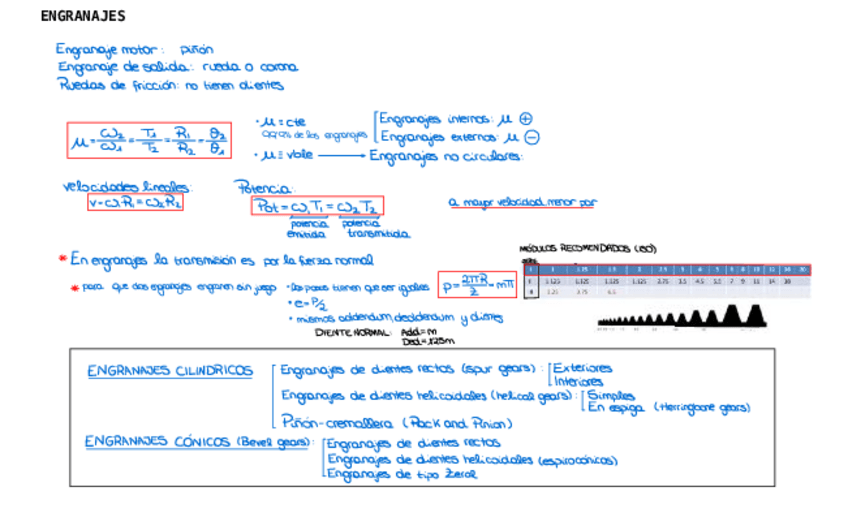 ENGRANAJES
Engranaje motor: piñón
Engranaje de salida: rueda o corona
Ruedas de fricción: no tienen dientes
μ = ω2/ω1 = T1/T2 = R1/R2 = θ2/θ1
· μ ≡ cte
de los engranajes
Engranajes internos: μ ⊕
Engranajes externos: μ ⊖
· μ ≡ vble → Engranajes no circulares:
velocidades lineales:
v = ω1R1 = ω2R2
Potencia:
Pot = ω1T1 = ω2T2
potencia emitida
potencia transmitida
a mayor velocidad, menor par
* En engranajes la transmisión es por la fuerza normal
* para que dos engranajes engranen sin juego · los pasos tienen que ser iguales p = 2πR/z = mπ
· e = P/2
· mismos addendum, deddendum y dientes
DIENTE NORMAL: Add = m
Ded = 1.25m
MÓDULOS RECOMENDADOS (ISO)
I 1 1.25 1.5 2 2.5 3 4 5 6 8 10 12 16 20
II 1.125 1.375 2.75 3.5 4.5 5.5 7 9 11 14 18
III 3.25 3.75 6.5
ENGRANAJES CILINDRICOS
Engranajes de dientes rectos (spur gears):
Exteriores
Interiores
Engranajes de dientes helicoidales (helical gears):
Simples
En espiga (Herringbone gears)
Piñón-cremallera (Rack and Pinion)
ENGRANAJES CÓNICOS (Bevel gears):
Engranajes de dientes rectos
Engranajes de dientes helicoidales (espirocónicos)
Engranajes de tipo Zerol